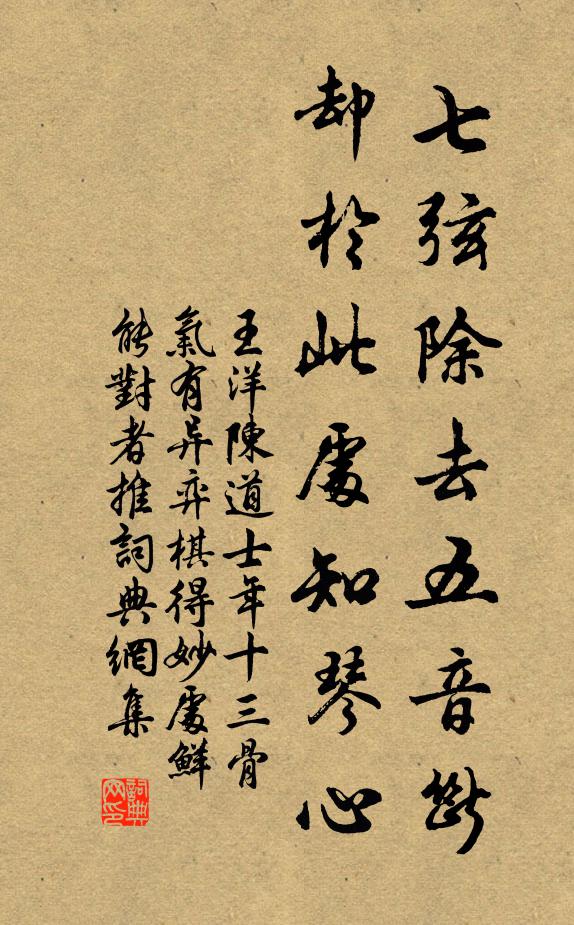 七弦除去五音断
却於此處知琴心
王洋陳道士年十三骨
氣有异弈棋得妙處鮮
能對者推詞典網集
詞典网印